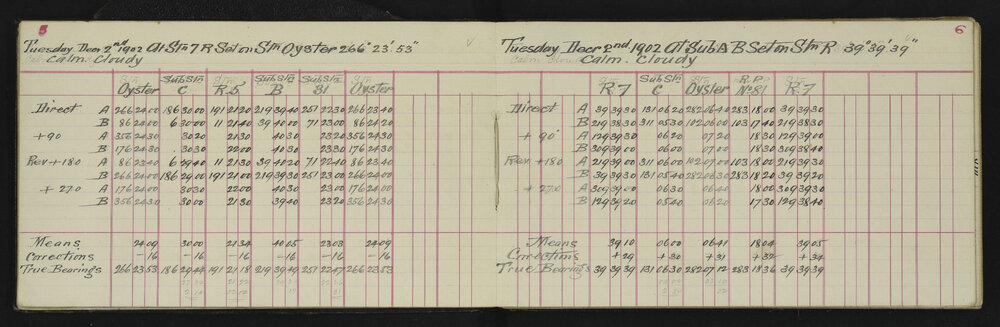 5
Tuesday Decr 2nd 1902 At Stn 7 R Set on Stn Oyster 266° 23' 53"
Calm. Cloudy
Stn Oyster Sub Stn C Stn R.5 Sub Stn B Sub Stn 81 Stn Oyster
Direct A 266 24 00 186 30 00 191 21 20 219 39 40 251 22 30 266 23 40
B 86 24 00 6 30 00 11 21 40 39 40 00 71 23 00 86 24 20
+90 A 356 24 30 30 20 21 30 40 30 23 20 356 24 30
B 176 24 30 30 30 22 00 40 30 23 30 176 24 30
Rev +180 A 86 23 40 6 29 40 11 21 30 39 40 20 71 22 40 86 23 40
B 266 24 00 186 29 00 191 21 00 219 39 30 251 23 00 266 24 00
+270 A 176 24 00 30 30 22 00 40 30 23 00 176 24 00
B 356 24 30 30 00 21 30 39 40 23 20 356 24 30
Means 24 09 30 00 21 34 40 05 23 03 24 09
Corrections -16 -16 -16 -16 -16 -16
True Bearings 266 23 53 186 29 44 191 21 18 219 39 49 251 22 47 266 23 53
6
Tuesday Decr 2nd 1902 At Sub A B Set on Stn R 39° 39' 39"
Calm. Cloudy
Stn R 7 Sub Stn C Stn Oyster R.P. No 81 Stn R.7
Direct A 39 39 30 131 06 20 282 06 40 283 18 00 39 39 30
B 219 38 30 311 05 30 102 06 00 103 17 40 219 38 30
+90° A 129 39 30 06 20 07 20 18 30 129 39 00
B 309 39 00 06 00 07 00 18 30 309 38 40
Rev +180 A 219 39 00 311 06 00 102 07 00 103 18 00 219 39 30
B 39 39 30 131 05 40 282 06 30 283 18 20 39 39 20
+270 A 309 39 00 06 30 06 40 18 00 309 39 30
B 129 39 20 05 40 06 20 17 30 129 38 40
Means 39 10 06 00 06 41 18 04 39 05
Corrections +29 +30 +31 +32 +34
True Bearings 39 39 39 131 06 30 282 07 12 283 18 36 39 39 39